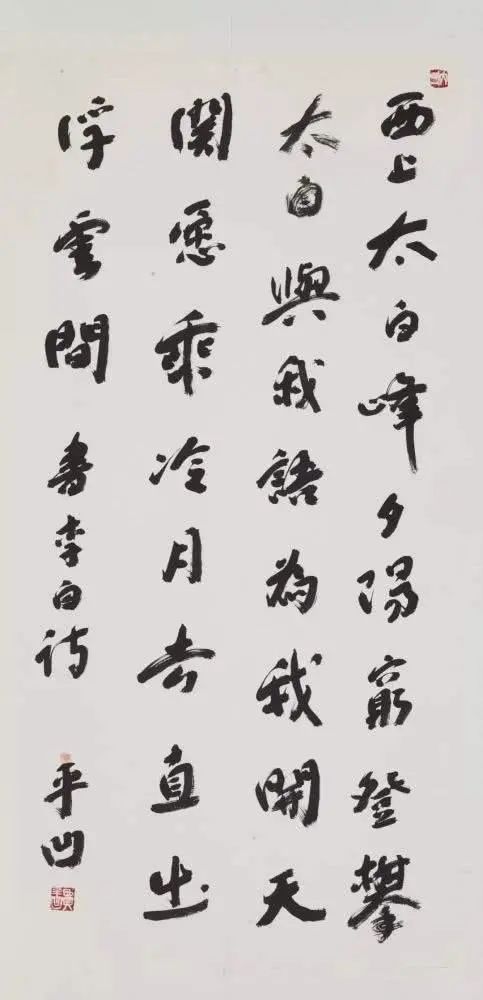 西上太白峰夕陽窮登攀
太白與我語為我開天
關愿乘冷月去直出
浮雲間 書李白詩 平凹